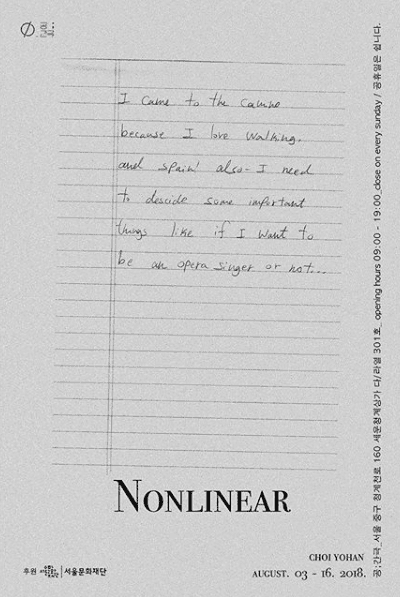 I came to the camino
because I love walking.
and spain! also. I need
to descide some important
things like if I want to
be an opera singer or not...
NONLINEAR
CHOI YOHAN
AUGUST. 03 - 16. 2018.
후원 서울문화재단
공:간극_서울 중구 청계천로 160 세운청계상가 다/라열 301호_ opening hours 09:00 - 19:00_close on every sunday / 공휴일은 쉽니다.